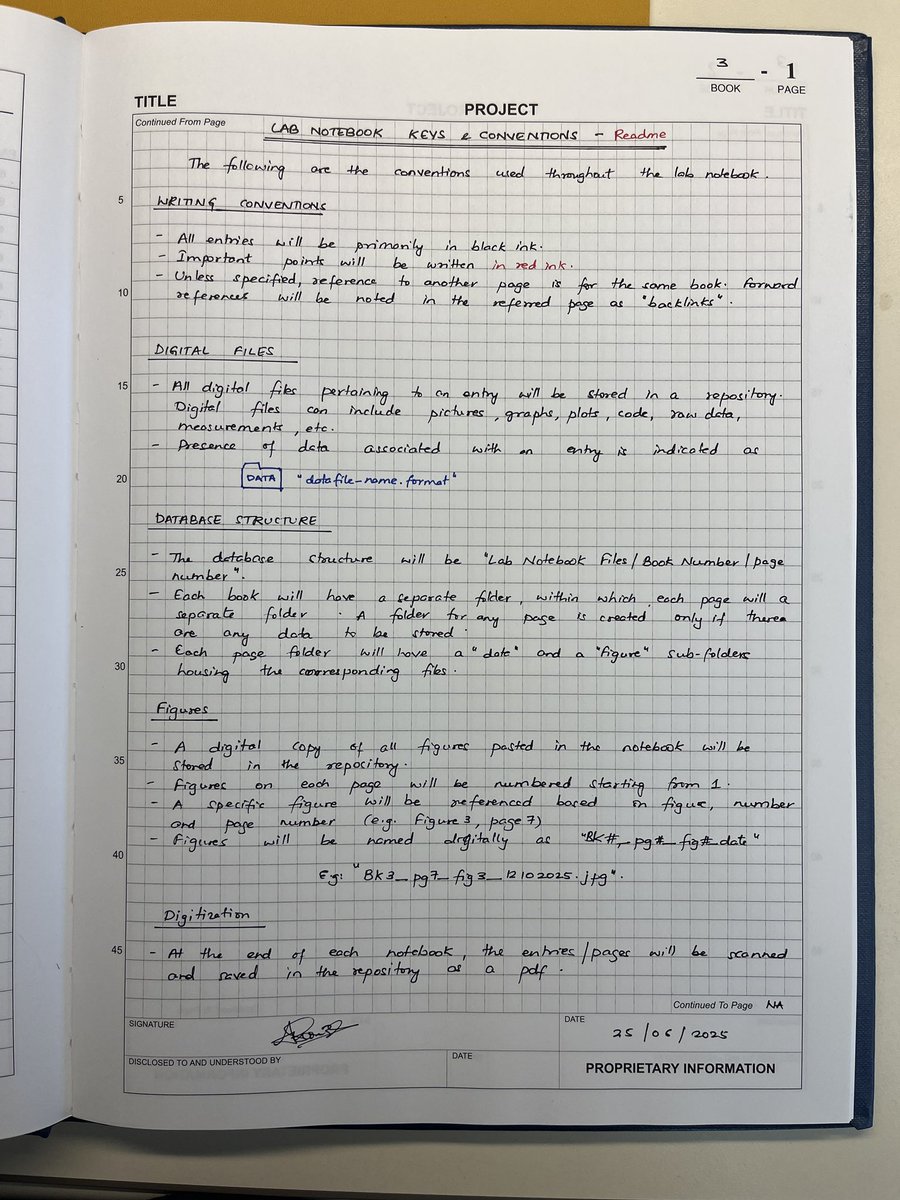 3 - 1
BOOK PAGE
TITLE
PROJECT
Continued From Page
LAB NOTEBOOK KEYS & CONVENTIONS - Readme
The following are the conventions used throughout the lab notebook.
5
WRITING CONVENTIONS
- All entries will be primarily in black ink.
- Important points will be written in red ink.
- Unless specified, reference to another page is for the same book. Forward
10
references will be noted in the referred page as "backlinks".
DIGITAL FILES
15
- All digital files pertaining to an entry will be stored in a repository.
Digital files can include pictures, graphs, plots, code, raw data,
measurements, etc.
- Presence of data associated with an entry is indicated as
20
DATA "datafile-name.format"
DATABASE STRUCTURE
- The database structure will be "Lab Notebook Files/Book Number/page
25
number".
- Each book will have a separate folder, within which, each page will a
separate folder. A folder for any page is created only if therea
are any data to be stored.
- Each page folder will have a "data" and a "figure" sub-folders
30
housing the corresponding files.
Figures
- A digital copy of all figures pasted in the notebook will be
35
stored in the repository.
- Figures on each page will be numbered starting from 1.
- A specific figure will be referenced based on figure, number
and page number (e.g. Figure 3, page 7)
- Figures will be named digitally as "BK#_pg#_fig#_date"
40
Eg: "BK3_pg7_fig3_12102025.jpg".
Digitization
45
- At the end of each notebook, the entries/pages will be scanned
and saved in the repository as a pdf.
Continued To Page NA
SIGNATURE
DATE
25/06/2025
DISCLOSED TO AND UNDERSTOOD BY
DATE
PROPRIETARY INFORMATION